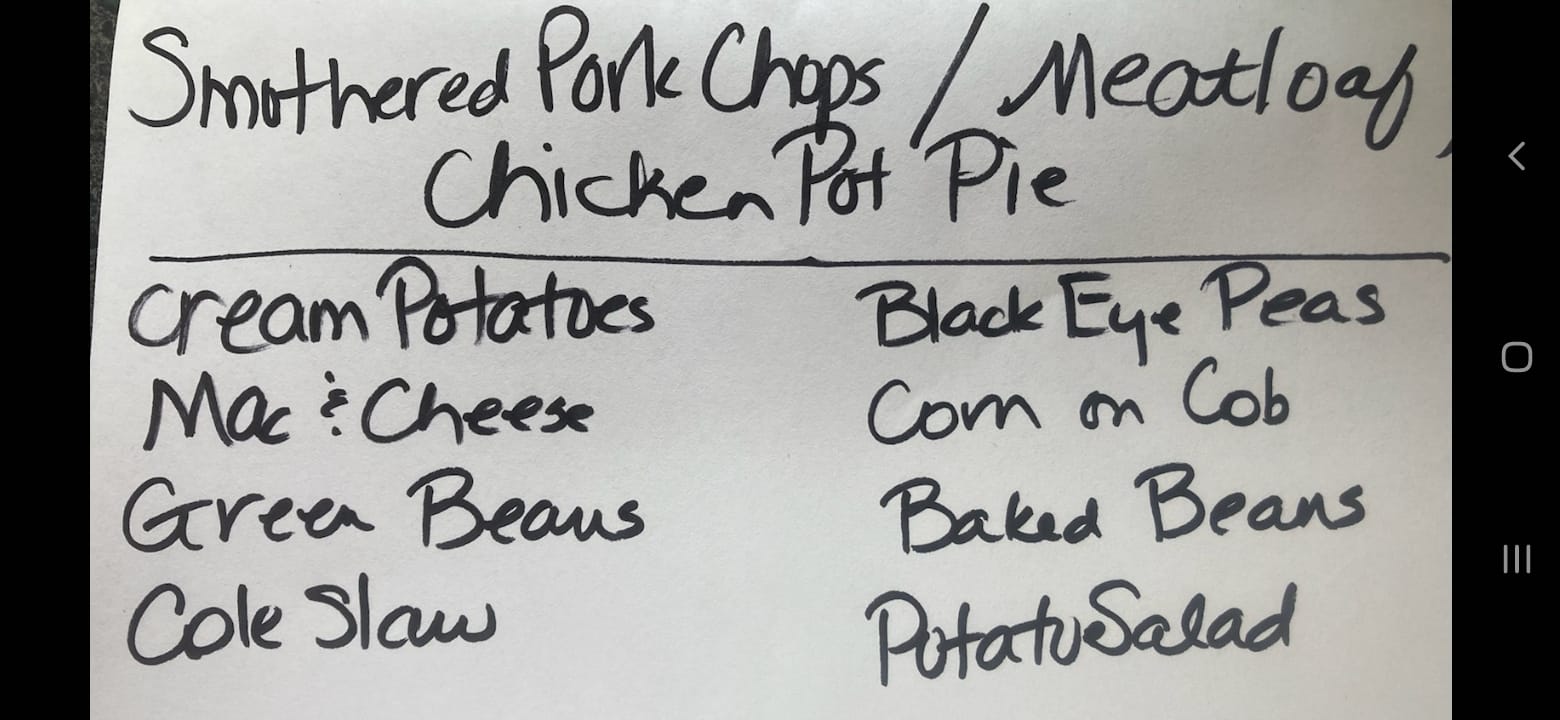 Smothered Pork Chops / Meatloaf,
Chicken Pot Pie
Cream Potatoes
Mac & Cheese
Green Beans
Cole Slaw
Black Eye Peas
Corn on Cob
Baked Beans
Potato Salad